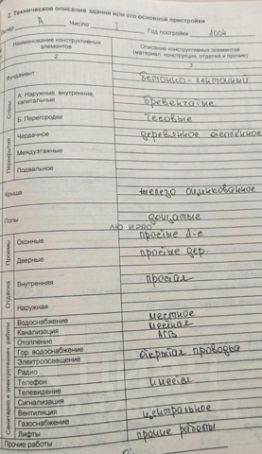 2. Техническое описание здания или его основной пристройки
Литер А Число 1 Год постройки 2004
Наименование конструктивных элементов
Описание конструктивных элементов (материал, конструкция, отделка и прочие)
2 3
Фундамент бетонно-ленточный
Стены
А. Наружные, внутренние, капитальные бревенчатые
Б. Перегородки тесовые
Перекрытия
Чердачное деревянное утеплённое
Междуэтажные
Подвальное
Крыша железо оцинкованное
Полы дощатые
Проемы
Оконные простые
Дверные простые дер.
Отделка
Внутренняя простая
Наружная
Санитарно и электротехнич. работы
Водоснабжение местное
Канализация местная
Отопление АГВ
Гор. водоснабжение
Электроосвещение открытая проводка
Радио
Телефон имеется
Телевидение
Сигнализация
Вентиляция
Газоснабжение центральное
Лифты
Прочие работы прочие работы